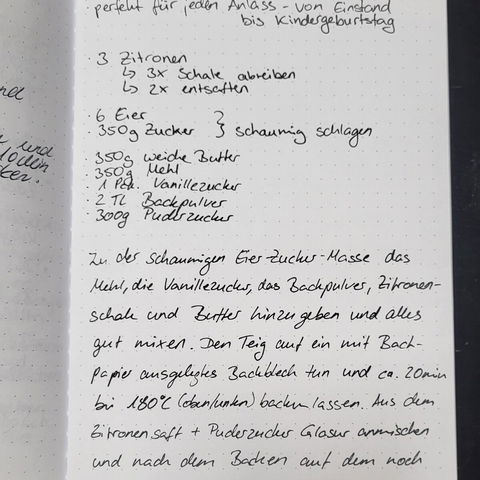 perfekt für jeden Anlass - von Einstand
bis Kindergeburtstag
· 3 Zitronen
↳ 3x Schale abreiben
↳ 2x entsaften
· 6 Eier
· 350g Zucker } schaumig schlagen
· 350g weiche Butter
· 350g Mehl
· 1 Pck. Vanillezucker
· 2 TL Backpulver
· 300g Puderzucker
Zu der schaumigen Eier-Zucker-Masse das
Mehl, die Vanillezucker, das Backpulver, Zitronen-
schale und Butter hinzugeben und alles
gut mixen. Den Teig auf ein mit Back-
papier ausgelegtes Backblech tun und ca. 20min
bei 180°C (oben/unten) backen lassen. Aus dem
Zitronensaft + Puderzucker Glasur anmischen
und nach dem Backen auf dem noch
und